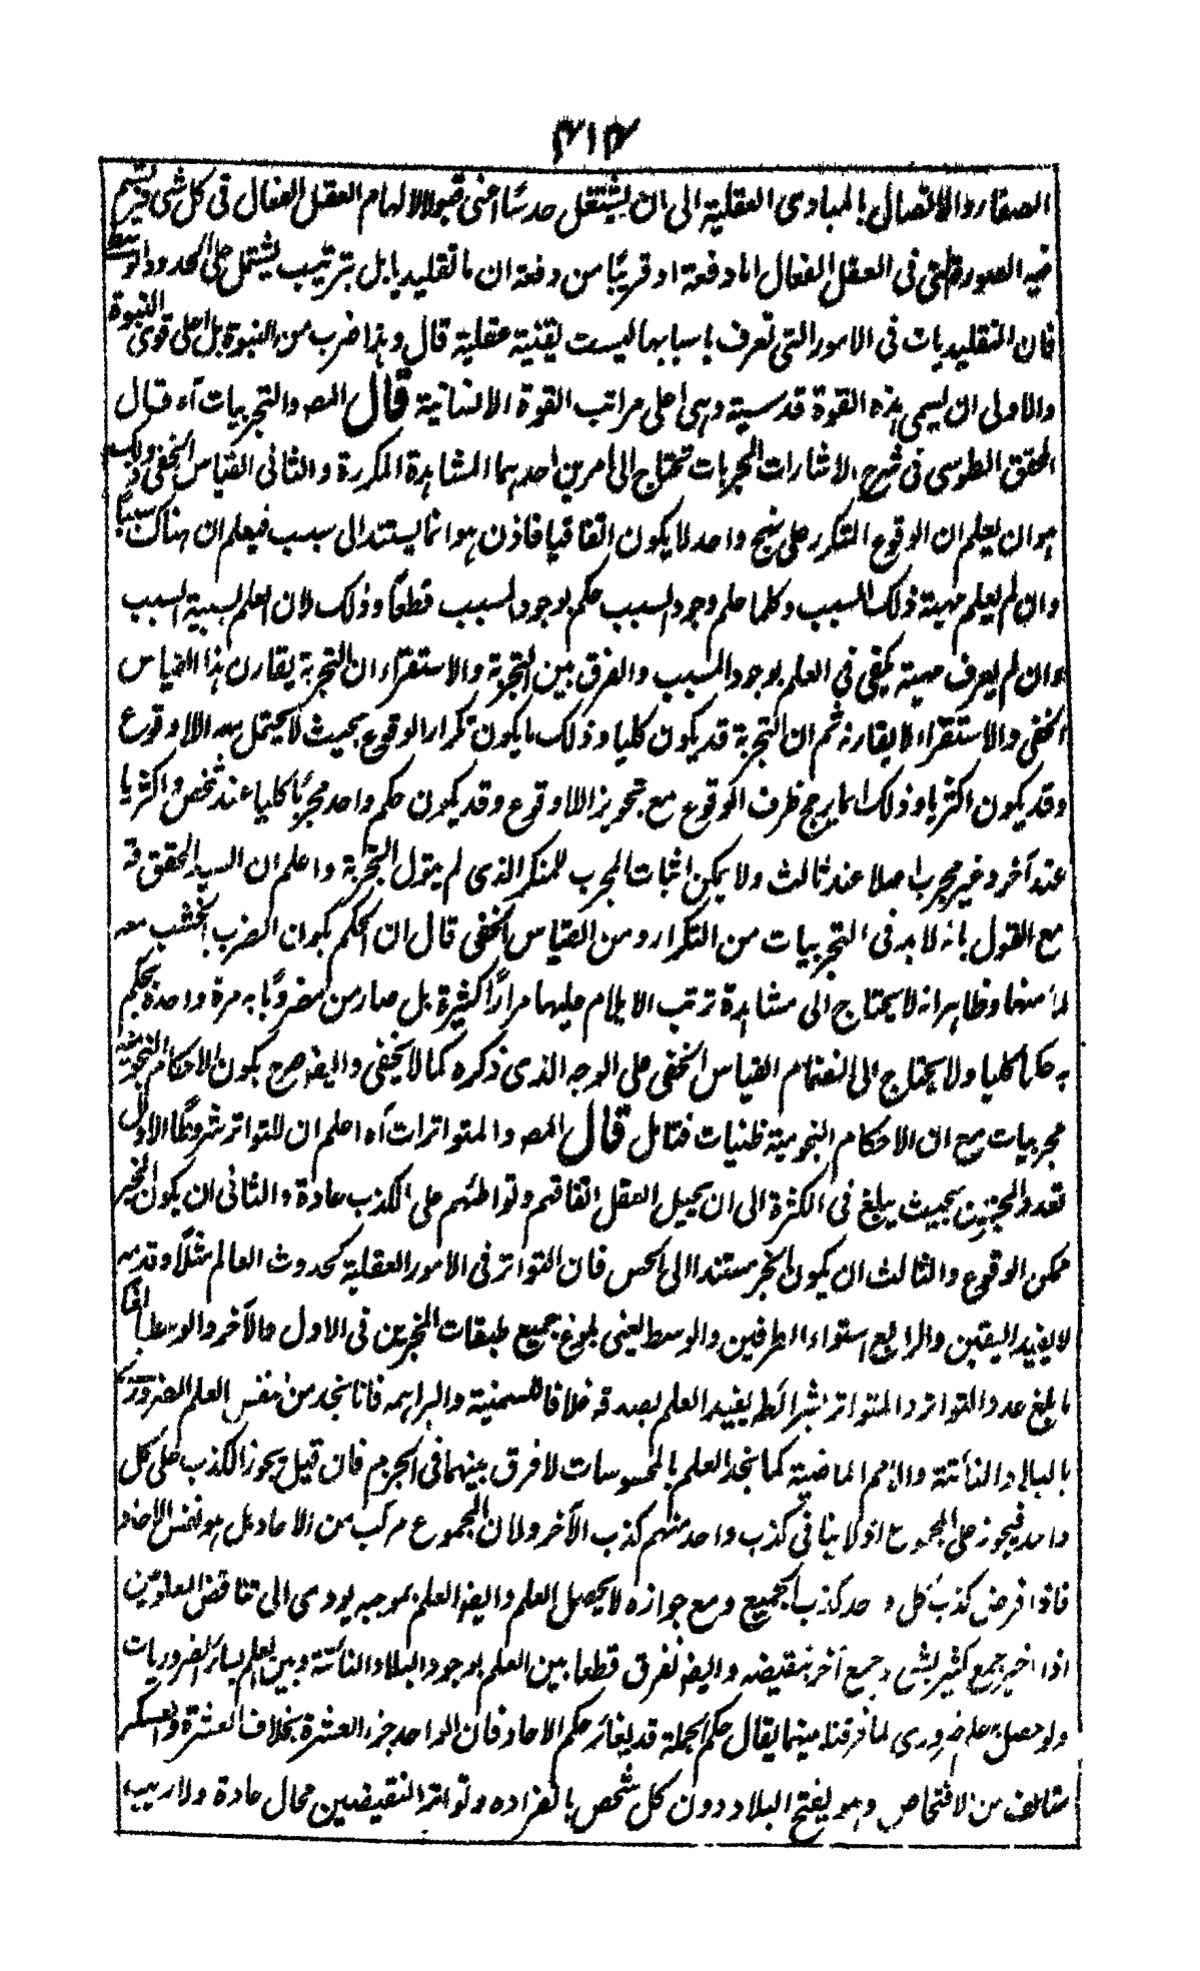 ٣١٣
الصفاء والاتصال بالمبادى العقلية الى ان يشتعل حدسًا اعنى قبولا لالهام العقل الفعال فى كل شى ويرتسم
فيه الصورة التى فى العقل الفعال اما دفعة او قريبًا من دفعة ان ما تقليديا بل بترتيب يشتمل على الحدود الوسط
فان التقليديات فى الامور التى تعرف باسبابها ليست يقنية عقلية قال وهذا ضرب من النبوة بل اعلى قوى النبوة
والاولى ان يسمى هذه القوة قدسية وهى اعلى مراتب القوة الانسانية قال المصـ والتجربيات آه قال
المحقق الطوسى فى شرح الاشارات المجربات تحتاج الى امرين احدهما المشاهدة المكررة والثانى القياس الخفى وذلك
هو ان يعلم ان الوقوع المتكرر على نهج واحد لا يكون اتفاقيا فاذن هو انما يستند الى سبب فيعلم ان هناك سببًا
وان لم يعلم مهية ذلك السبب وكلما علم وجود السبب حكم بوجود المسبب قطعًا وذلك لان العلم بسببية السبب
وان لم يعرف مهية يكفى فى العلم بوجود المسبب والفرق بين التجربة والاستقراء ان التجربة يقارن هذا القياس
الخفى والاستقراء لا يقارنه ثم ان التجربة قد يكون كليا وذلك ما يكون تكرار الوقوع بحيث لا يحتمل معه اللاوقوع
وقد يكون اكثريا وذلك انما يرجح طرف الوقوع مع تجويز اللاوقوع وقد يكون حكم واحد مجربًا كليا عند شخص واكثريا
عند آخر وغير مجرب اصلا عند ثالث ولا يمكن اثبات المجرب للمنكر الذى لم يتول التجربة واعلم ان السيد المحقق قه
مع القول بانه لا بد فى التجربيات من التكرار ومن القياس الخفى قال ان الحكم بكون الضرب بالخشب معه
لما منها وظاهر انه لا يحتاج الى مشاهدة ترتب الايلام عليها مرارًا كثيرة بل صار من مضروبًا به مرة واحدة يحكم
به حكما كليا ولا يحتاج الى انضمام القياس الخفى على الوجه الذى ذكره كما لا يخفى وايضا صرح بكون الاحكام النجومية
مجربيات مع ان الاحكام النجومية ظنيات فتامل قال المصـ والمتواترات آه اعلم ان للتواتر شروطًا الاول
تعدد المخبرين بحيث يبلغ فى الكثرة الى ان يحيل العقل اتفاقهم وتواطئهم على الكذب عادة والثانى ان يكون المخبر
ممكن الوقوع والثالث ان يكون الخبر مستندا الى الحس فان التواتر فى الامور العقلية كحدوث العالم مثلًا وقدمه
لا يفيد اليقين والرابع استواء الطرفين والوسط يعنى بلوغ جميع طبقات المخبرين فى الاول والآخر والوسط بالغا
ما بلغ عدد التواتر والمتواتر بشرائطه يفيد العلم بصدقه خلافا للسمنية والبراهمه فانا نجد من نفس العلم الضرورى
بالبلاد النائية والامم الماضية كما نجد العلم بالمحسوسات لا فرق بينهما فى الجزم فان قيل يجوز الكذب على كل
واحد فيجوز على المجموع اذ لا ينافى كذب واحد منهم كذب الآخر ولان المجموع مركب من الاحاد بل هو نفس الاحاد
فاذا فرض كذب كل واحد كذب الجميع ومع جوازه لا يحصل العلم وايضا العلم بموجبه يودى الى تناقض المعلومين
اذا اخبر جمع كثير بشى وجمع آخر بنقيضه وايضا نفرق قطعا بين العلم بوجود البلاد النائية وبين العلم بسائر الضروريات
ولو حصل به علم ضرورى لما فرقنا بينهما يقال حكم الجملة قد يغائر حكم الاحاد فان الواحد جزء العشرة بخلاف العشرة والعسكر
متالف من الاشخاص وهو يفتح البلاد دون كل شخص بانفراده وتواتر النقيضين محال عادة ولا ريب